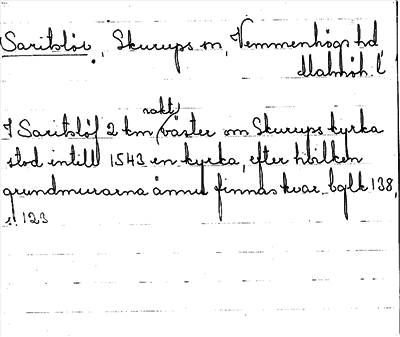 Saritslöv, Skurups sn, Vemmenhögs hd,
Malmöh. l.
I Saritslöf 2 km rakt väster om Skurups kyrka
stod intill 1543 en kyrka, efter hvilken
grundmurarna ännu finnas kvar. bglk 138,
s. 123